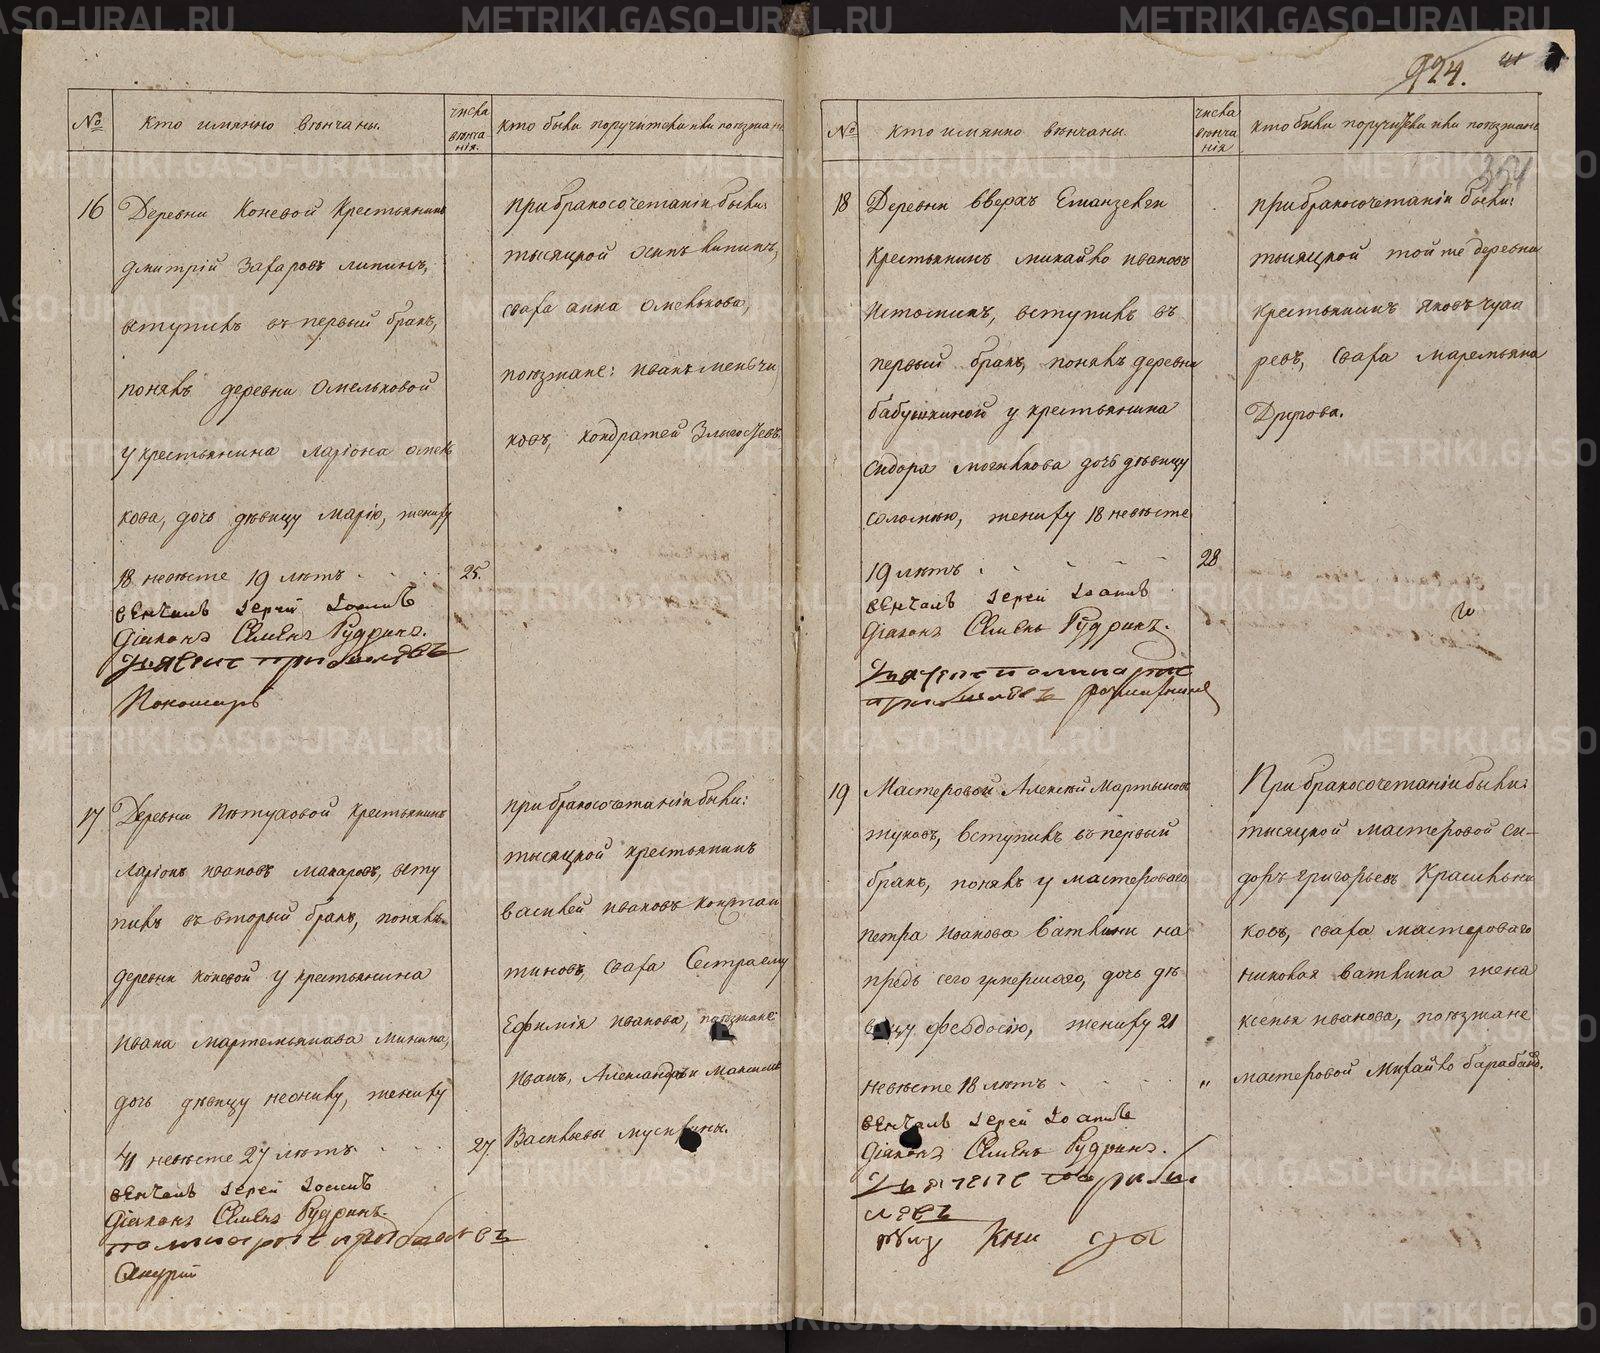 924.
№ Кто имянно вѣнчаны. числа вѣнчанія. Кто были поручители или поѣзжане
16 Деревни Коневой Крестьянинъ
дмитрій Захаровъ липинъ,
вступилъ въ первый бракъ,
понявъ деревни Омельковой
у крестьянина Ларіона омель
кова, дочь дѣвицу Марію, жениху
18 невѣсте 19 лѣтъ. 25.
вѣнчалъ Іерей Іоаннъ
Діаконъ Семенъ Рудринъ.
при бракосочетаніи были:
тысяцкой осипъ липинъ,
сваха анна Омелькова,
поѣзжане: иванъ меньчи
ковъ, кондратей
17 Деревни Пѣтуховой крестьянинъ
Ларіонъ ивановъ макаровъ, всту
пилъ въ вторый бракъ, понявъ
деревни коневой у крестьянина
ивана мартемьянова минина,
дочь дѣвицу неонилу, жениху
41 невѣсте 27 лѣтъ. 27.
вѣнчалъ Іерей Іоаннъ
Діаконъ Семенъ Рудринъ.
при бракосочетаніи были:
тысяцкой крестьянинъ
василей ивановъ констан
тиновъ, сваха Сестра ему
Ефимія иванова, поѣзжане:
иванъ, Александръ и Максимъ
Васильевы
№ кто имянно вѣнчаны. числа вѣнчанія кто были поручители или поѣзжане
354
18 Деревни вверхъ Еманзелги
крестьянинъ михайло ивановъ
Истоминъ, вступилъ въ
первый бракъ, понявъ деревни
бабушкиной у крестьянина
сидора могилкова дочь дѣвицу
соломию, жениху 18 невѣсте
19 лѣтъ. 28
вѣнчалъ Іерей Іоаннъ
Діаконъ Семенъ Рудринъ.
при бракосочетаніи были:
тысяцкой той же деревни
крестьянинъ яковъ чуда
ревъ, сваха маремьяна
Другова.
19 Мастеровой Алексей Мартыновъ
жуковъ, вступилъ въ первый
бракъ, понявъ у мастероваго
петра иванова Ваткина на
предь сего умершаго, дочь дѣ
вицу феодосію, жениху 21
невѣсте 18 лѣтъ. "
вѣнчалъ Іерей Іоаннъ
Діаконъ Семенъ Рудринъ.
При бракосочетаніи были:
тысяцкой мастеровой си-
доръ григорьевъ Красильни
ковъ, сваха мастероваго
жена
ксенья иванова, поѣзжане
мастеровой Михайло